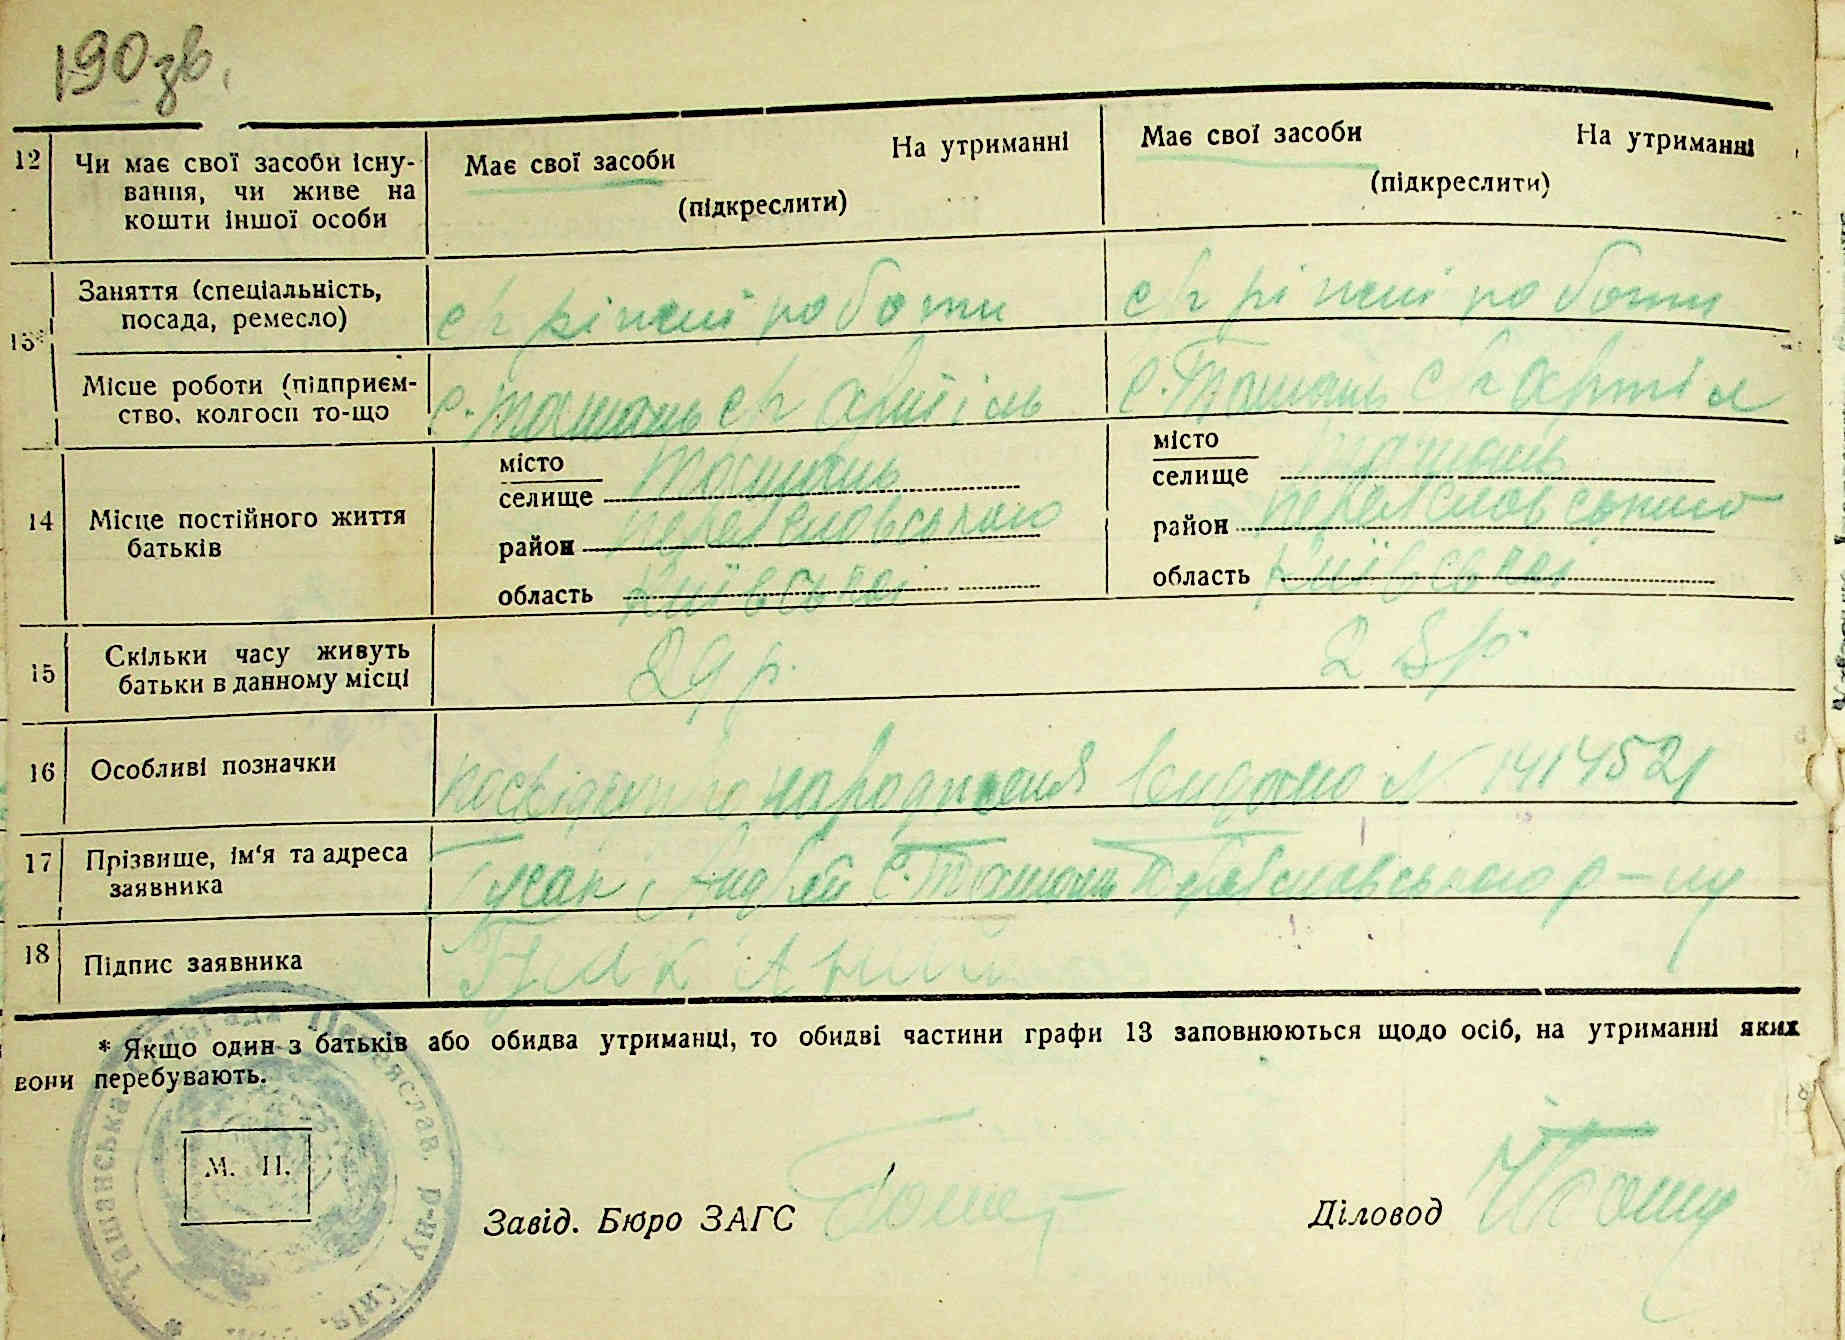 190 зв.
12 Чи має свої засоби існу-
вання, чи живе на
кошти іншої особи
Має свої засоби На утриманні
(підкреслити)
Має свої засоби На утриманні
(підкреслити)
13*
Заняття (спеціальність,
посада, ремесло)
с/г ріжні роботи
с/г ріжні роботи
Місце роботи (підприєм-
ство, колгосп то-що
с. Ташань с/г артіль
с. Ташань с/г артіл
14 Місце постійного життя
батьків
місто
селище Ташань
район Переяславського
область Київської
місто
селище Ташань
район Переяславського
область Київської
15 Скільки часу живуть
батьки в данному місці
29 р.
28 р.
16 Особливі позначки
народження видано N 1414521
17 Прізвище, ім'я та адреса
заявника
Гусак Андрій с. Ташань Переяславського р-ну
18 Підпис заявника
Гусак
* Якщо один з батьків або обидва утриманці, то обидві частини графи 13 заповнюються щодо осіб, на утриманні яких
вони перебувають.
М. П.
Ташанська сільрада Переяслав. р-ну Київ.
Завід. Бюро ЗАГС
Діловод